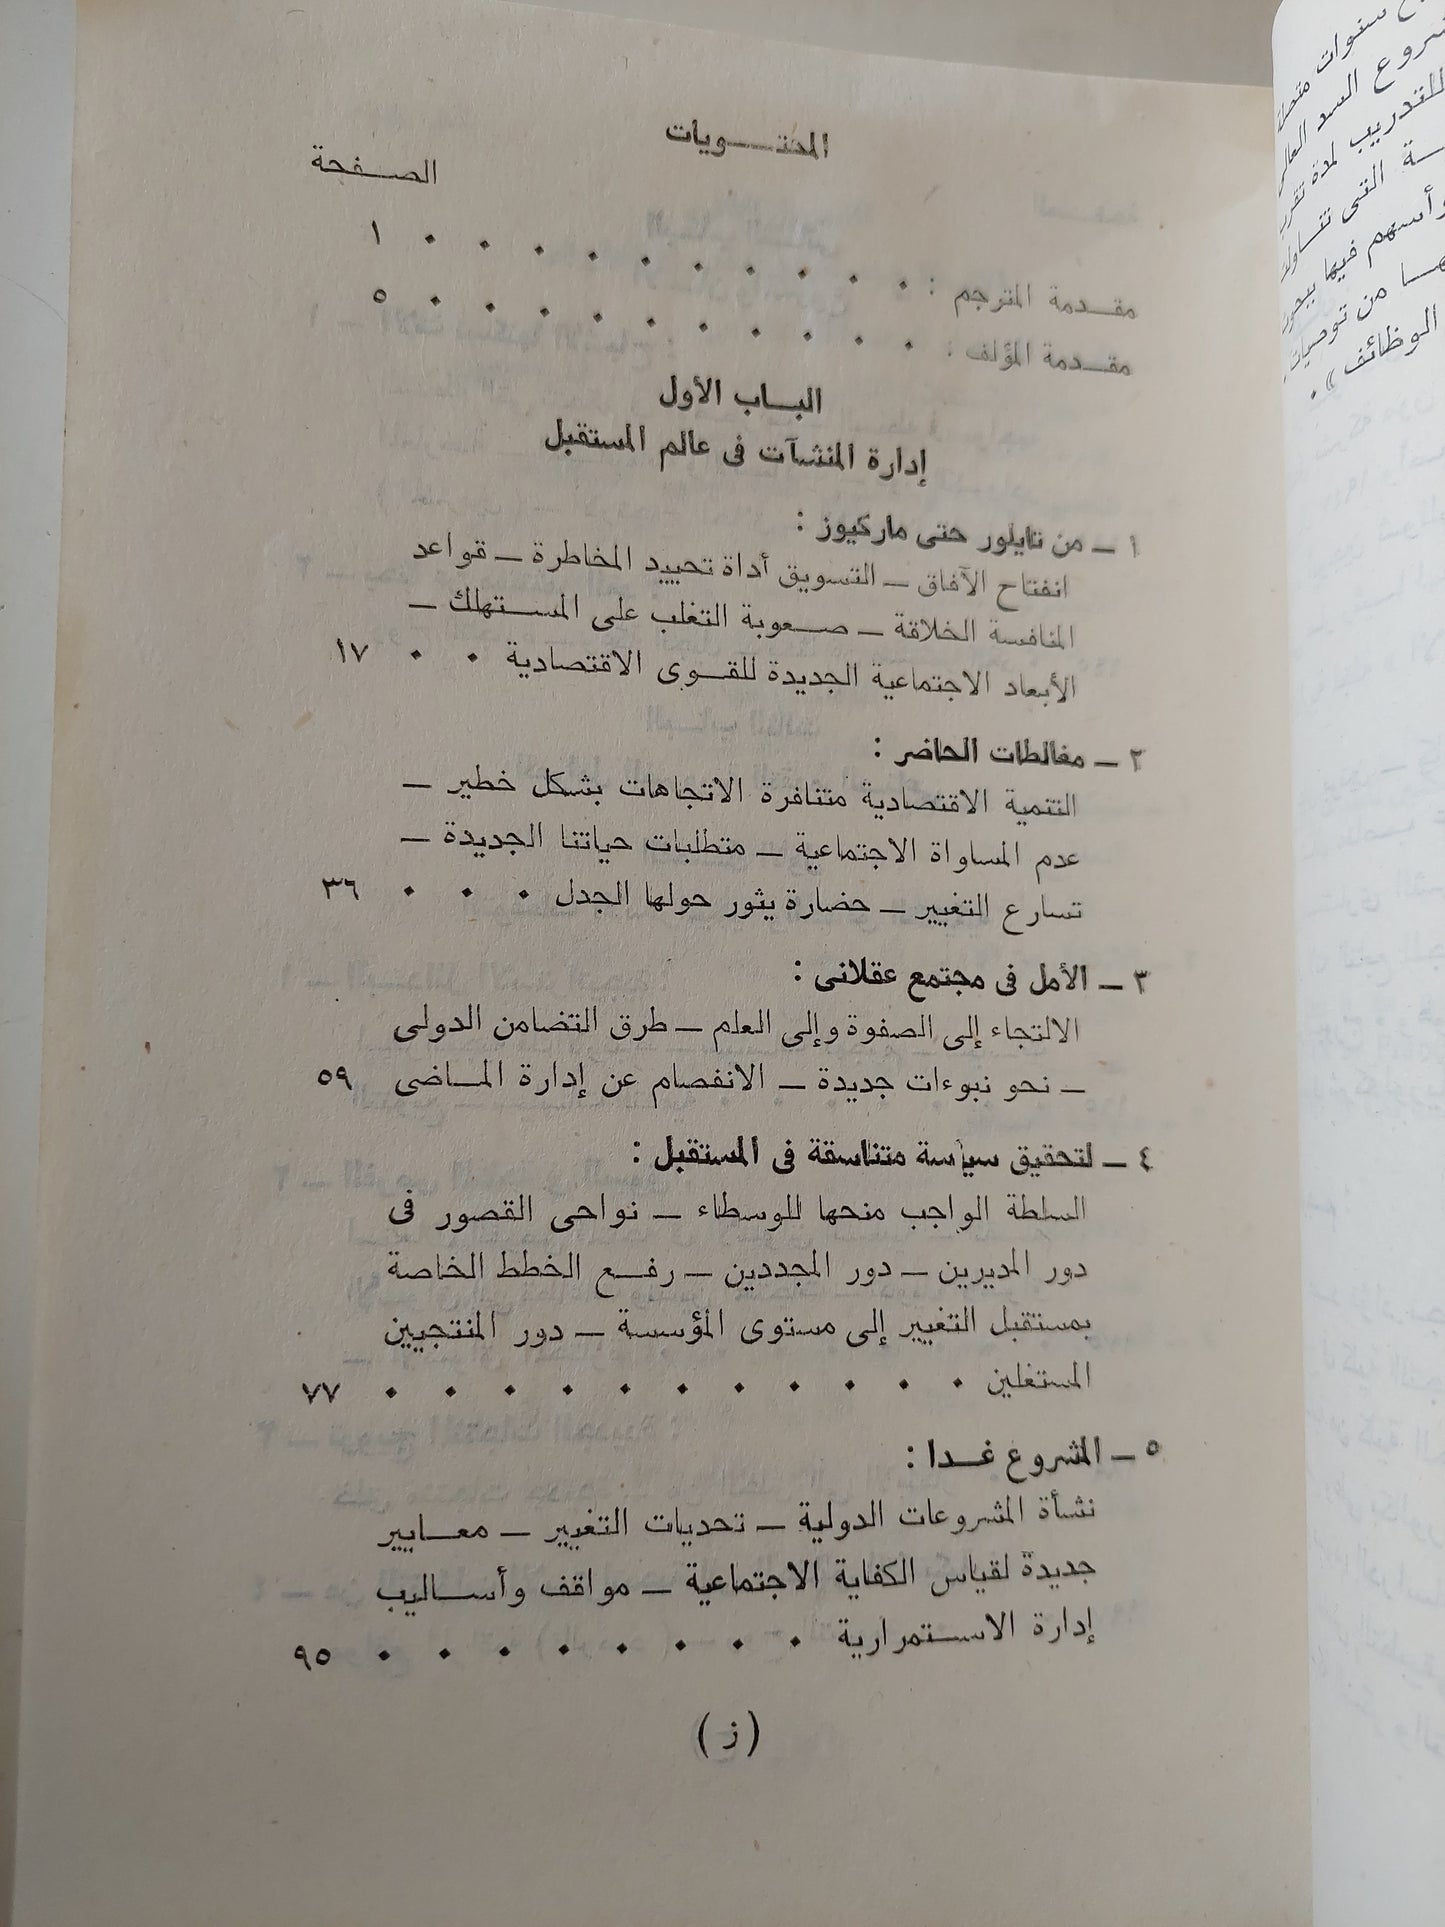 المحتويات
الصفحة
مقدمة المترجم : . . . . . . . . . . ١
مقدمة المؤلف : . . . . . . . . . . ٥
الباب الأول
إدارة المنشآت فى عالم المستقبل
١ — من تايلور حتى ماركيوز :
انفتاح الآفاق — التسويق أداة تحييد المخاطرة — قواعد
المنافسة الخلاقة — صعوبة التغلب على المستهلك —
الأبعاد الاجتماعية الجديدة للقوى الاقتصادية . . ١٧
٢ — مغالطات الحاضر :
التنمية الاقتصادية متنافرة الاتجاهات بشكل خطير —
عدم المساواة الاجتماعية — متطلبات حياتنا الجديدة —
تسارع التغيير — حضارة يثور حولها الجدل . . . ٣٦
٣ — الأمل فى مجتمع عقلانى :
الالتجاء إلى الصفوة وإلى العلم — طرق التضامن الدولى
— نحو نبوءات جديدة — الانفصام عن إدارة الماضى ٥٩
٤ — لتحقيق سياسة متناسقة فى المستقبل :
السلطة الواجب منحها للوسطاء — نواحى القصور فى
دور المديرين — دور المجددين — رفع الخطط الخاصة
بمستقبل التغيير إلى مستوى المؤسسة — دور المنتجيين
المستغلين . . . . . . . . . . . ٧٧
٥ — المشروع غدا :
نشأة المشروعات الدولية — تحديات التغيير — معايير
جديدة لقياس الكفاية الاجتماعية — مواقف وأساليب
إدارة الاستمرارية . . . . . . . . ٩٥
( ز )
سنوات
السد العالى
للتدريب لمدة
التى
وأسهم فيها
من توصيات
الوظائف » .